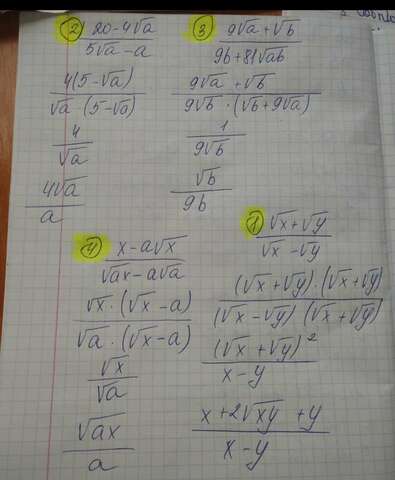 2) (20-4√a)/(5√a-a)
(4(5-√a))/(√a (5-√a))
4/√a
4√a/a
3) (9√a+√b)/(9b+81√ab)
(9√a+√b)/(9√b·(√b+9√a))
1/(9√b)
√b/(9b)
4) (x-a√x)/(√ax-a√a)
(√x·(√x-a))/(√a·(√x-a))
√x/√a
√ax/a
1) (√x+√y)/(√x-√y)
((√x+√y)·(√x+√y))/((√x-√y)(√x+√y))
(√x+√y)²/(x-y)
(x+2√xy+y)/(x-y)